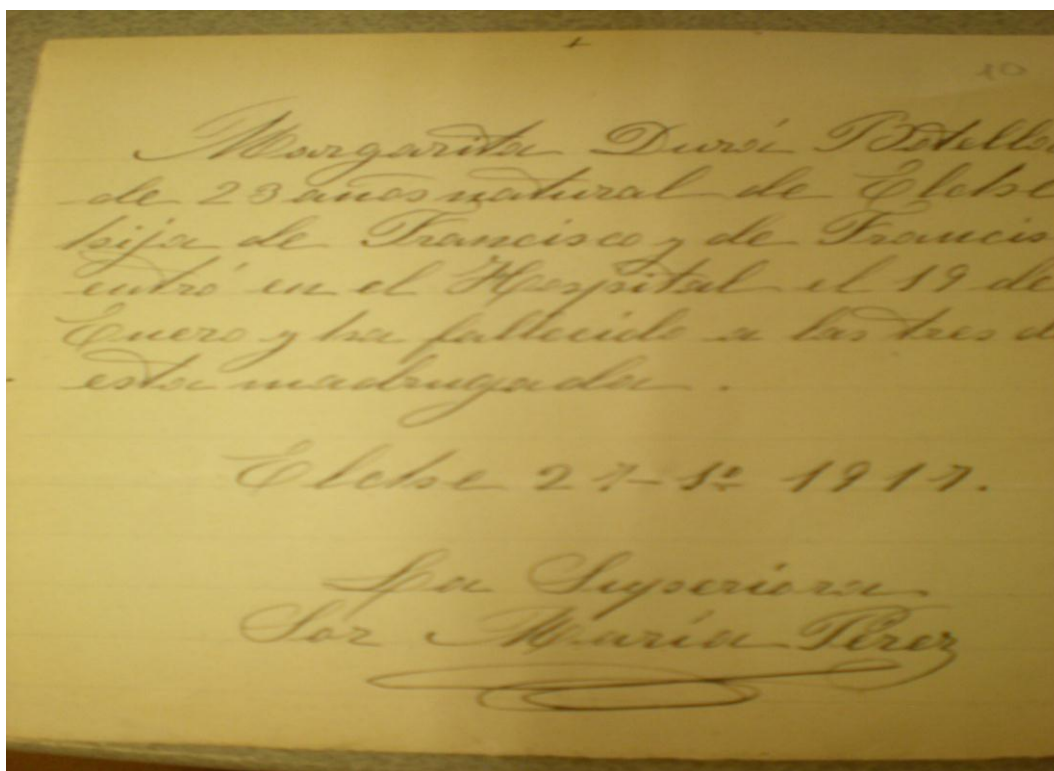 10
Margarita Durá Botella
de 23 años natural de Elche
hija de Francisco y de Francis
entró en el Hospital el 19 de
Enero y ha fallecido a las tres d
esta madrugada.
Elche 27-1º 1917.
La Superiora
Sor María Pérez